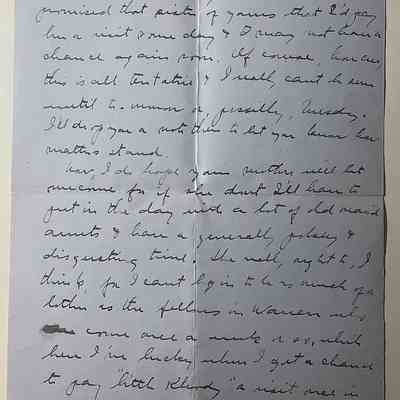 promised that sister of yours that I'd pay
her a visit some day & I may not have a
chance again soon. Of course, however,
this is all tentative & I really can't be sure
until to-morrow or, possibly, Tuesday.
I'll drop you a note then to let you know how
matters stand.
Now, I do hope your mother will let
me come for if she don't I'll have to
put in the day with a lot of old maid
aunts & have a generally &
disgusting time. She really ought to, I
think, for I can't begin to be as much of a
bother as the fellows in Warren who
come once a week or so, while
here I'm lucky when I get a chance
to pay "little" a visit once in